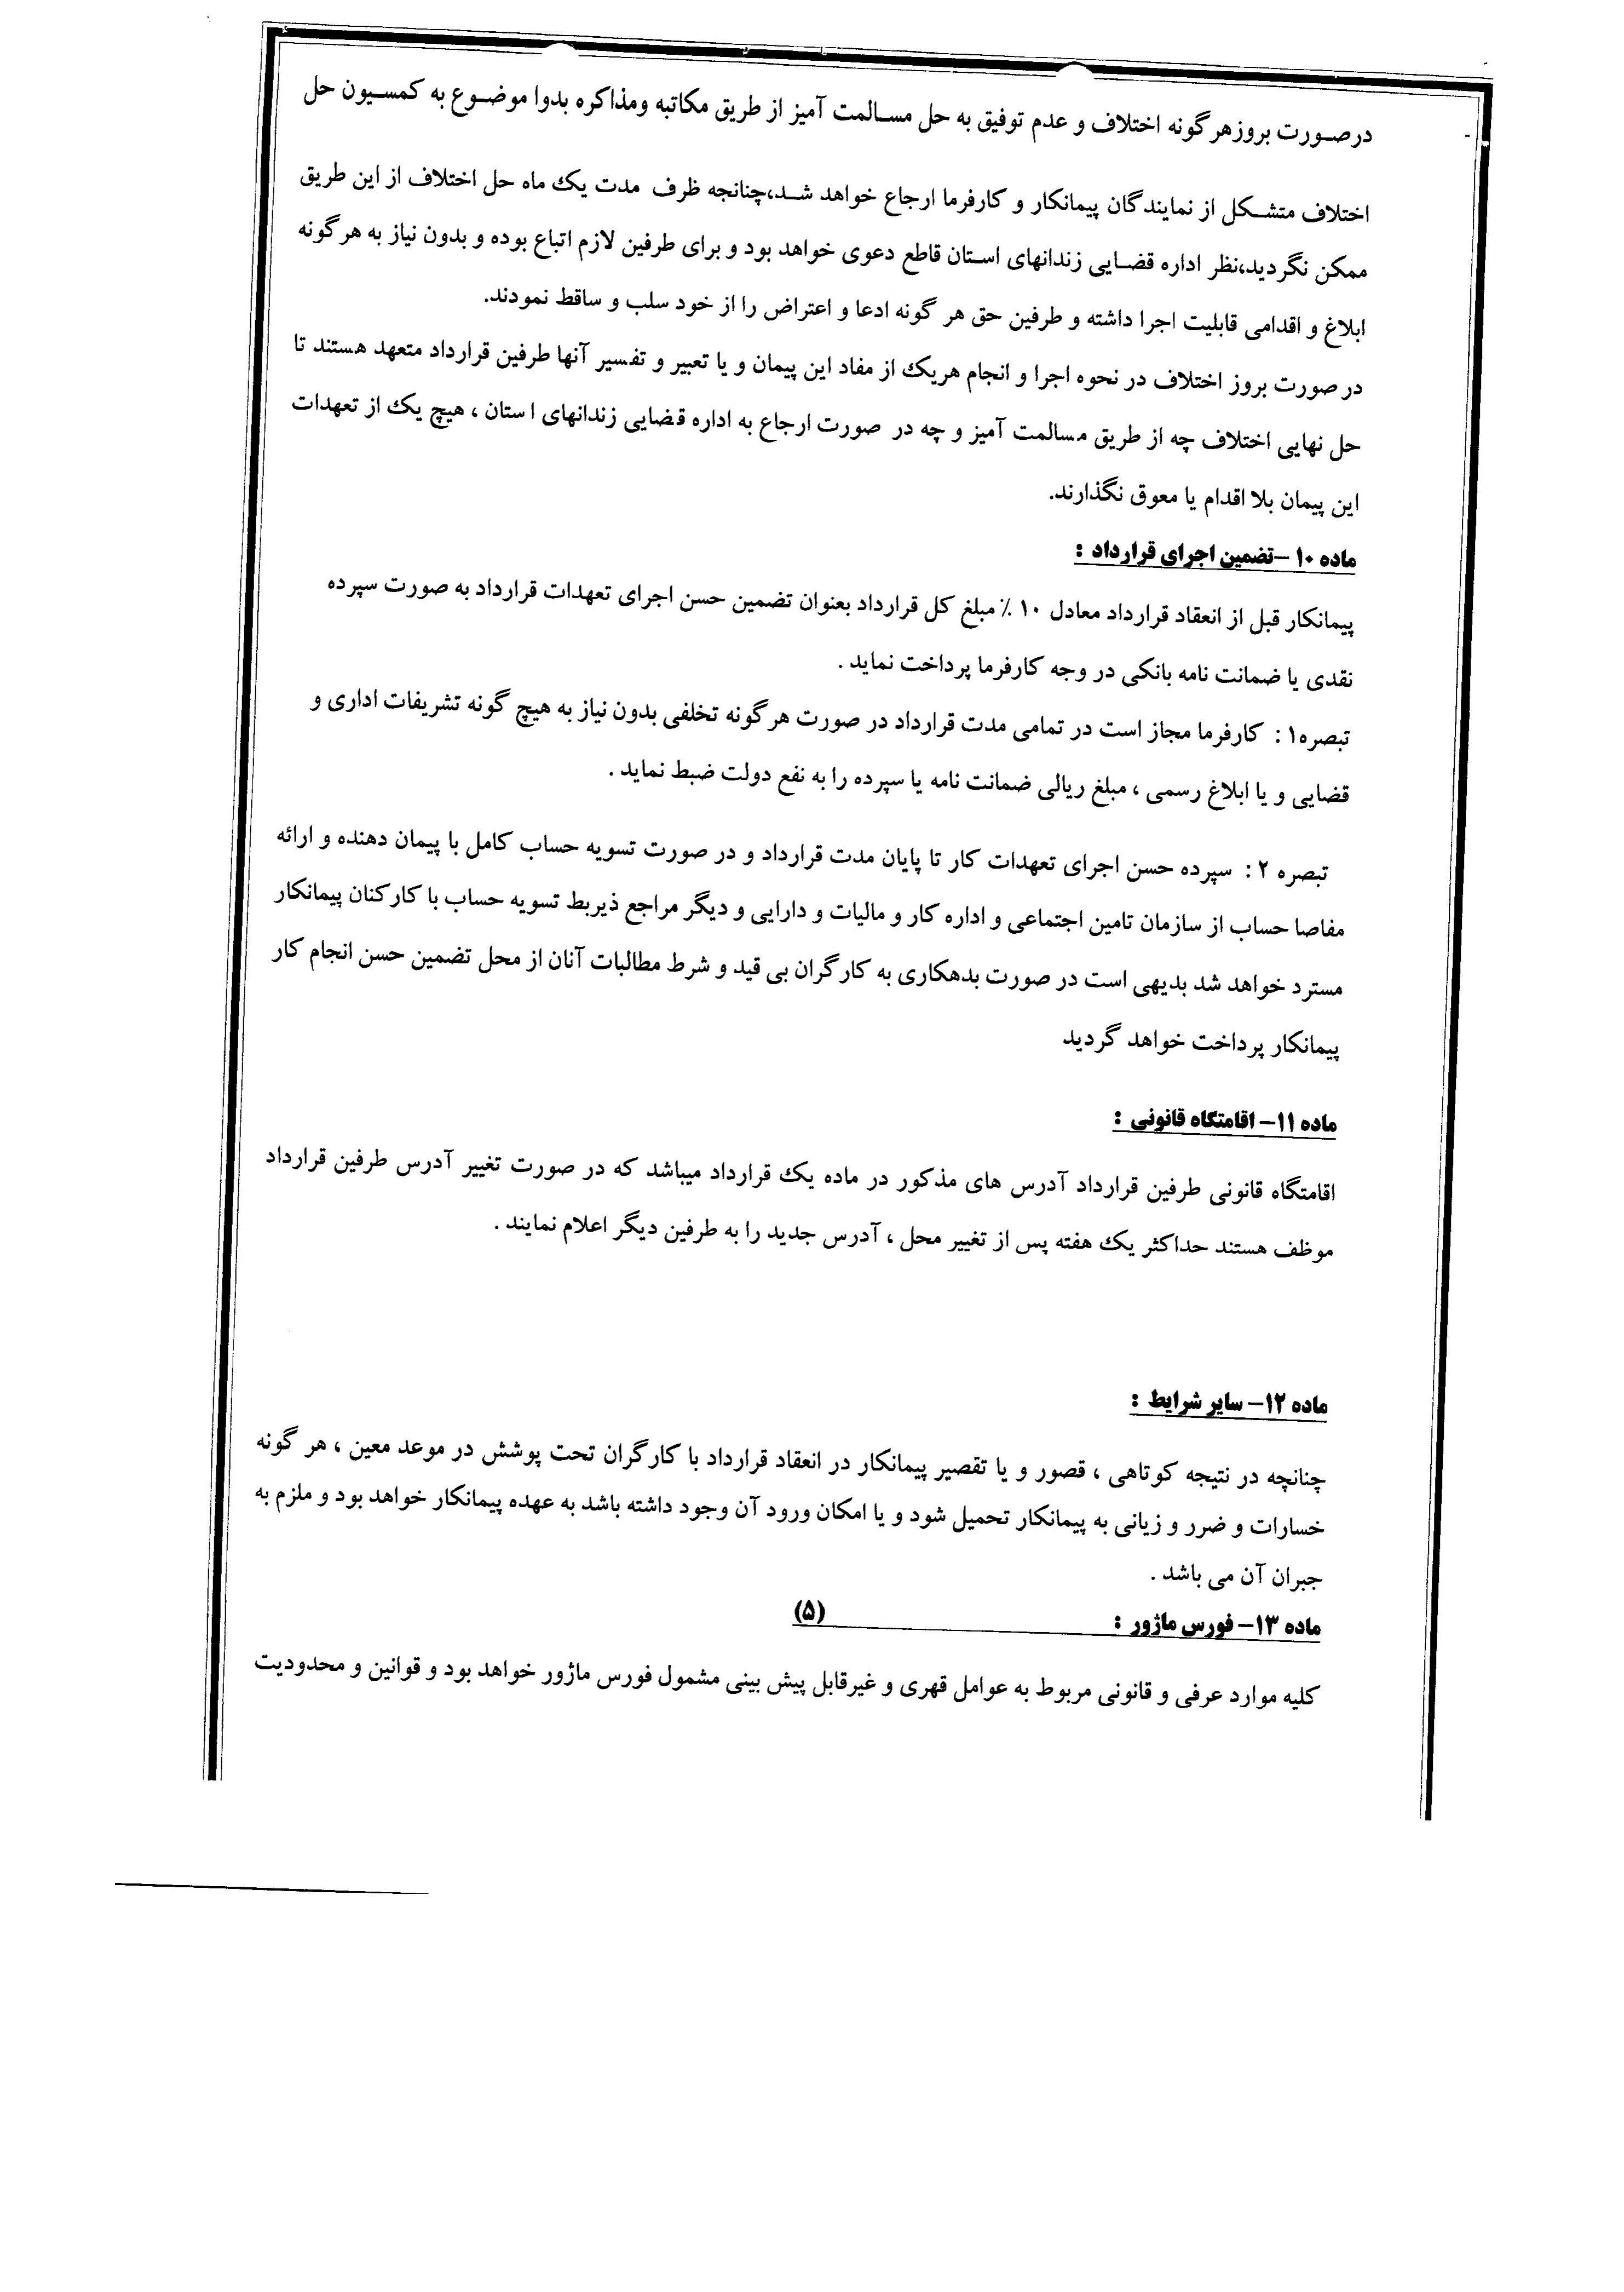 درصورت بروزهرگونه اختلاف و عدم توفیق به حل مسالمت آمیز از طریق مکاتبه ومذاکره بدوا موضوع به کمسیون حل
اختلاف متشکل از نمایندگان پیمانکار و کارفرما ارجاع خواهد شد،چنانجه ظرف مدت یک ماه حل اختلاف از این طریق
ممکن نگردید،نظر اداره قضایی زندانهای استان قاطع دعوی خواهد بود و برای طرفین لازم اتباع بوده و بدون نیاز به هرگونه
ابلاغ و اقدامی قابلیت اجرا داشته و طرفین حق هر گونه ادعا و اعتراض را از خود سلب و ساقط نمودند.
در صورت بروز اختلاف در نحوه اجرا و انجام هریک از مفاد این پیمان و یا تعبیر و تفسیر آنها طرفین قرارداد متعهد هستند تا
حل نهایی اختلاف چه از طریق مسالمت آمیز و چه در صورت ارجاع به اداره قضایی زندانهای استان ، هیچ یک از تعهدات
این پیمان بلا اقدام یا معوق نگذارند.
ماده ۱۰ –تضمین اجرای قرارداد :
پیمانکار قبل از انعقاد قرارداد معادل ۱۰ ٪ مبلغ کل قرارداد بعنوان تضمین حسن اجرای تعهدات قرارداد به صورت سپرده
نقدی یا ضمانت نامه بانکی در وجه کارفرما پرداخت نماید .
تبصره۱ : کارفرما مجاز است در تمامی مدت قرارداد در صورت هرگونه تخلفی بدون نیاز به هیچ گونه تشریفات اداری و
قضایی و یا ابلاغ رسمی ، مبلغ ریالی ضمانت نامه یا سپرده را به نفع دولت ضبط نماید .
تبصره ۲ : سپرده حسن اجرای تعهدات کار تا پایان مدت قرارداد و در صورت تسویه حساب کامل با پیمان دهنده و ارائه
مفاصا حساب از سازمان تامین اجتماعی و اداره کار و مالیات و دارایی و دیگر مراجع ذیربط تسویه حساب با کارکنان پیمانکار
مسترد خواهد شد بدیهی است در صورت بدهکاری به کارگران بی قید و شرط مطالبات آنان از محل تضمین حسن انجام کار
پیمانکار پرداخت خواهد گردید
ماده ۱۱– اقامتگاه قانونی :
اقامتگاه قانونی طرفین قرارداد آدرس های مذکور در ماده یک قرارداد میباشد که در صورت تغییر آدرس طرفین قرارداد
موظف هستند حداکثر یک هفته پس از تغییر محل ، آدرس جدید را به طرفین دیگر اعلام نمایند .
ماده ۱۲– سایر شرایط :
چنانچه در نتیجه کوتاهی ، قصور و یا تقصیر پیمانکار در انعقاد قرارداد با کارگران تحت پوشش در موعد معین ، هر گونه
خسارات و ضرر و زیانی به پیمانکار تحمیل شود و یا امکان ورود آن وجود داشته باشد به عهده پیمانکار خواهد بود و ملزم به
جبران آن می باشد .
ماده ۱۳– فورس ماژور : (۵)
کلیه موارد عرفی و قانونی مربوط به عوامل قهری و غیرقابل پیش بینی مشمول فورس ماژور خواهد بود و قوانین و محدودیت